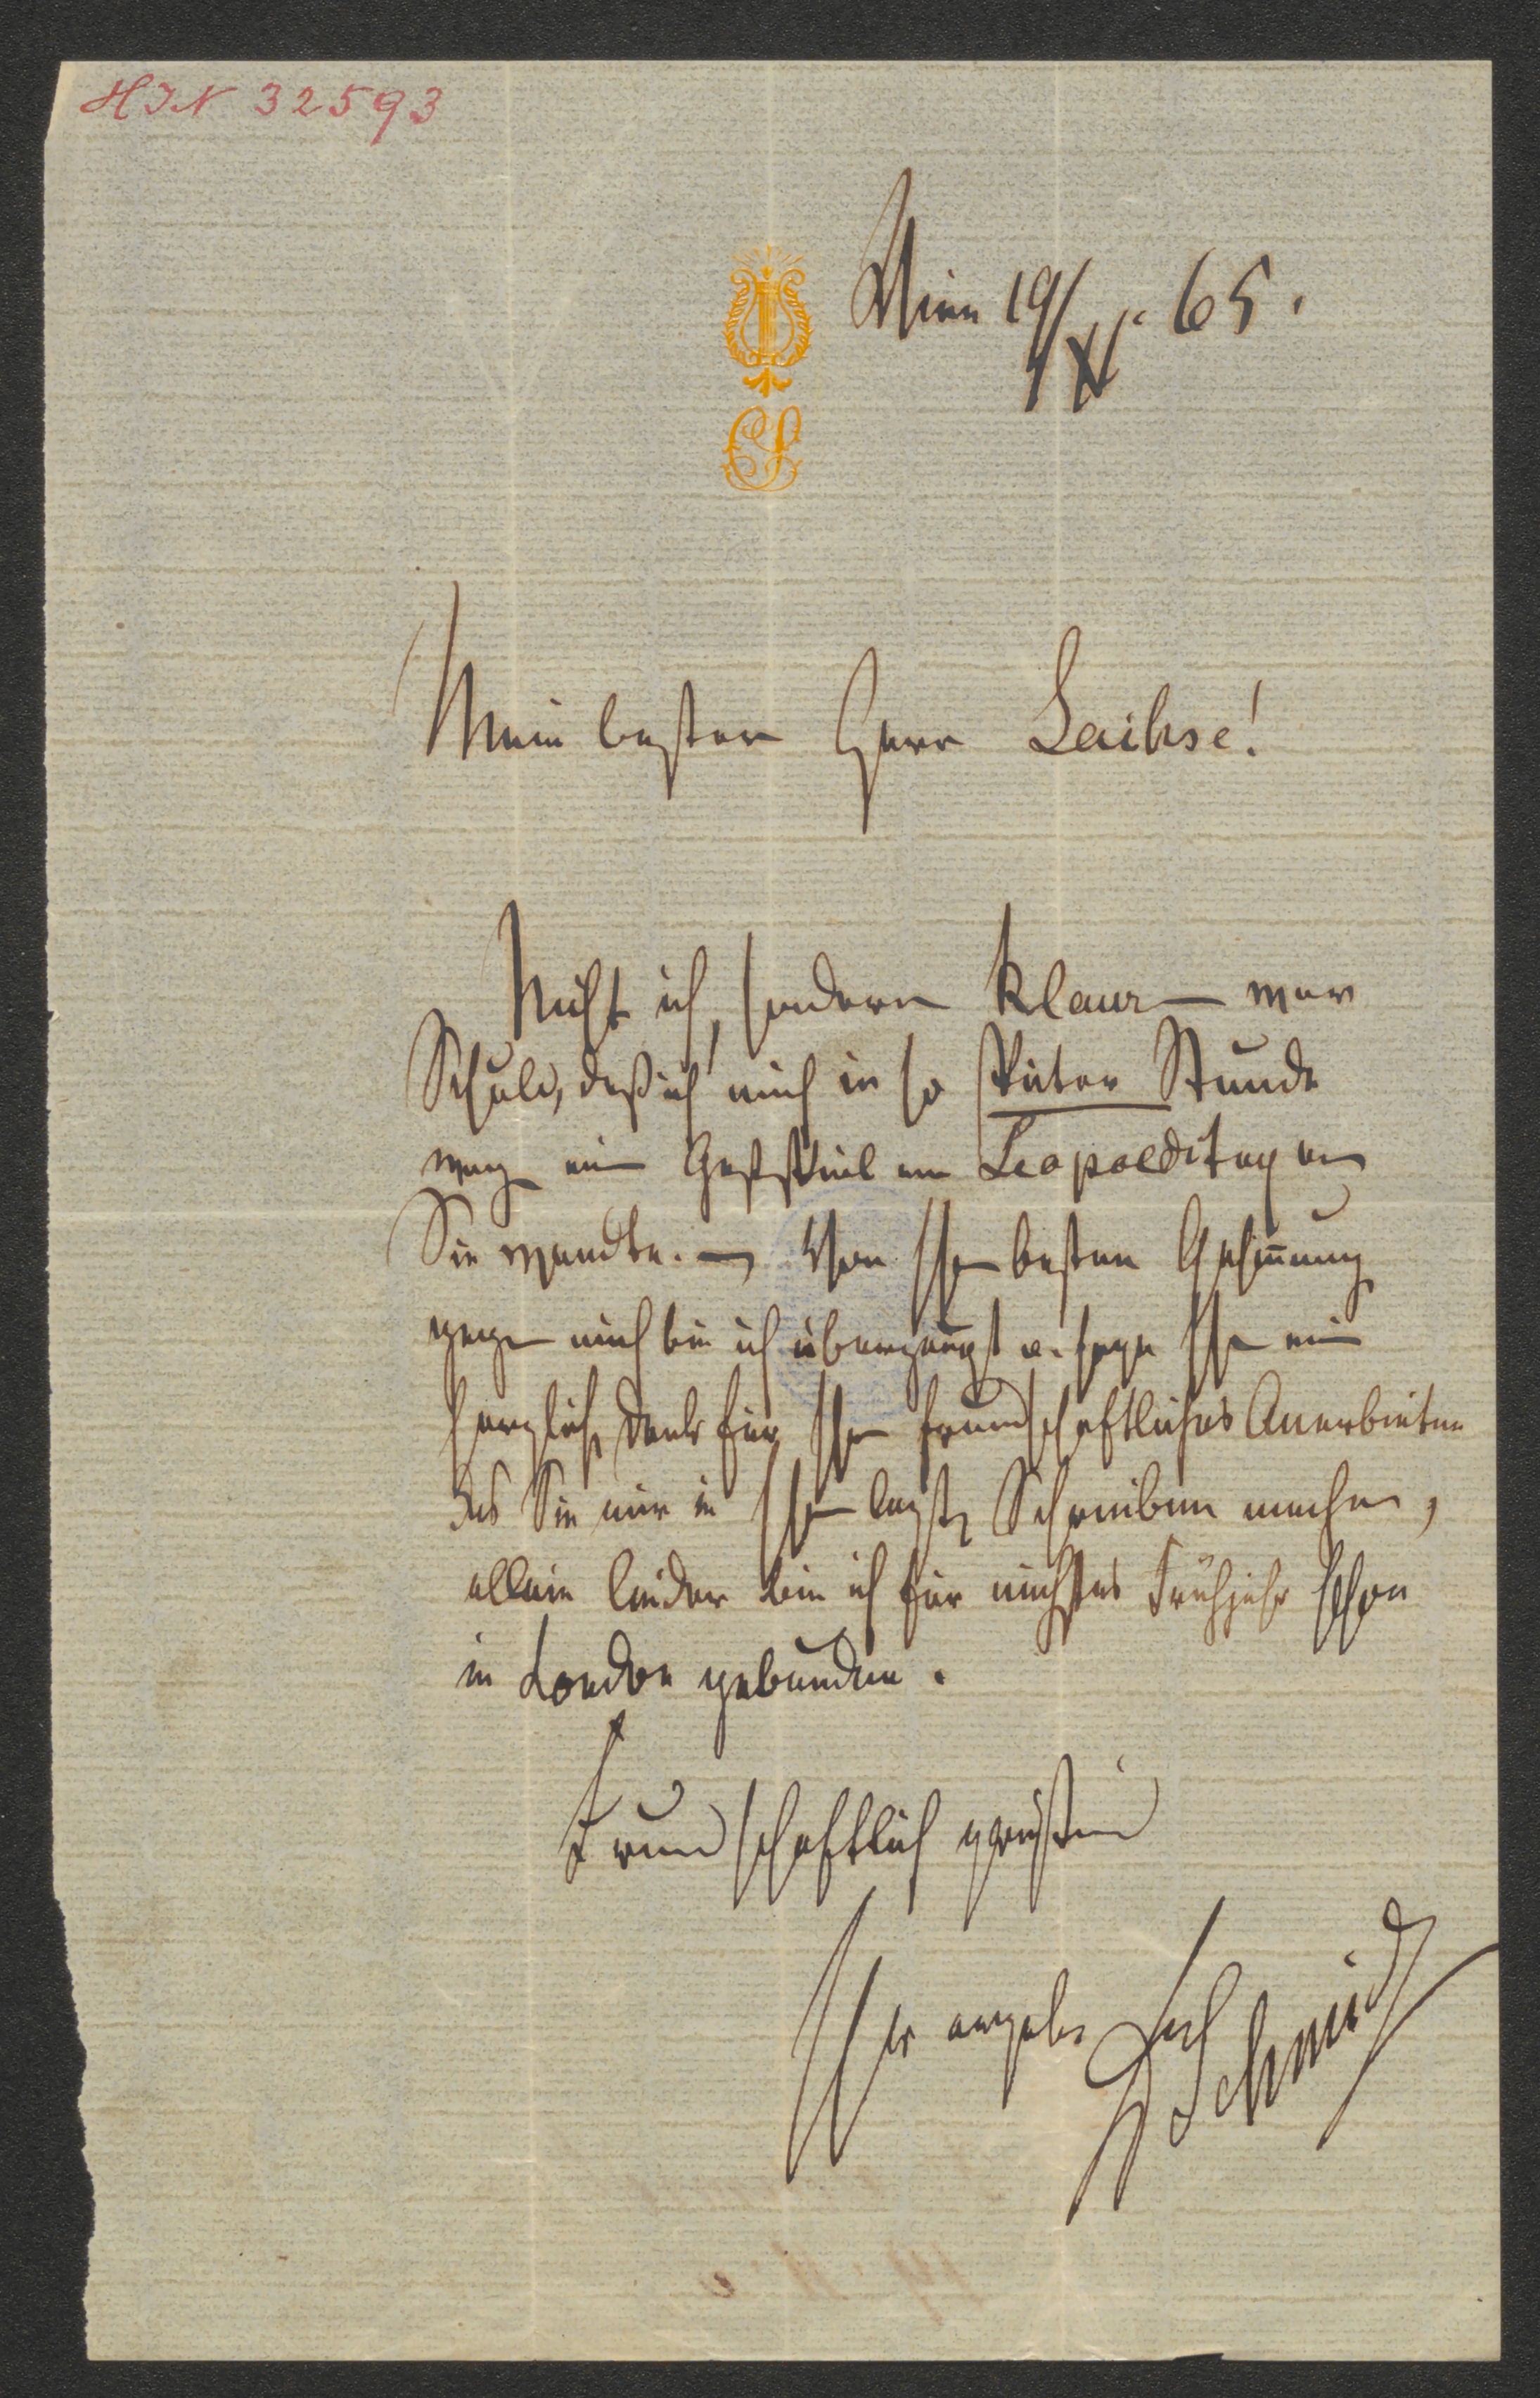 HIN 32593
Wien 19/XI. 65.
CS
Mein bester Herr Laibse!
Nicht ich, sondern Klaur — war
Schuld, daß ich mich in so später Stunde
weg. ein Gastspiel am Leopolditag an
Sie wandte. — Von Ihr besten Gesinnung
gegen mich bin ich überzeugt u. sage Ihn mein
herzlich Dank für Ihr freundschaftliches Anerbieten
das Sie mir in Ihrem letzt Schreiben machen,
allein leider bin ich für nächstes Frühjahr schon
in London gebunden.
Freundschaftlich grüßend
Ihr ergebn
Schmid